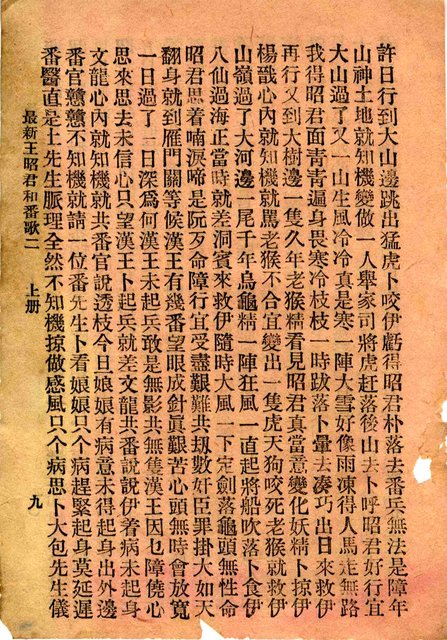 許日行到大山邊跳出猛虎卜咬伊虧得昭君朴落去番兵無法是障年
山神土地就知機變做一人舉家司將虎赶落後山去卜呼昭君好行宜
大山過了又一山生風冷冷真是寒一陣大雪好像雨凍得人馬走無路
我得昭君面青青遍身畏寒冷枝枝一時跋落卜暈去凑巧出日來救伊
再行又到大樹邊一隻久年老猴精看見昭君真當意變化妖精卜掠伊
楊戩心內就知機就罵老猴不合宜變出一隻虎天狗咬死老猴就救伊
山嶺過了大河邊一尾千年烏龜精一陣狂風一直起將船吹落卜食伊
八仙過海正當時就差洞賓來救伊隨時大風一下定劍落龜頭無性命
昭君思着喃淚啼是阮歹命障行宜受盡艱難共刼數奸臣罪掛大如天
翻身就到雁門關等候漢王有幾番望眼成針真艱苦心頭無時會放寬
一日過了一日深爲何漢王未起兵敢是無影共無隻漢王因乜障僥心
思來思去未信心只望漢王卜起兵就差文龍共番說說伊着病未起身
文龍心內就知機就共番官說透枝今旦娘娘有病意未得起身出外邊
番官戇戇不知機就請一位番先生卜看娘娘只个病趕緊起身莫延遲
番醫直是土先生脈理全然不知機掠做感風只个病思卜大包先生儀
最新王昭君和番歌二　上册　九